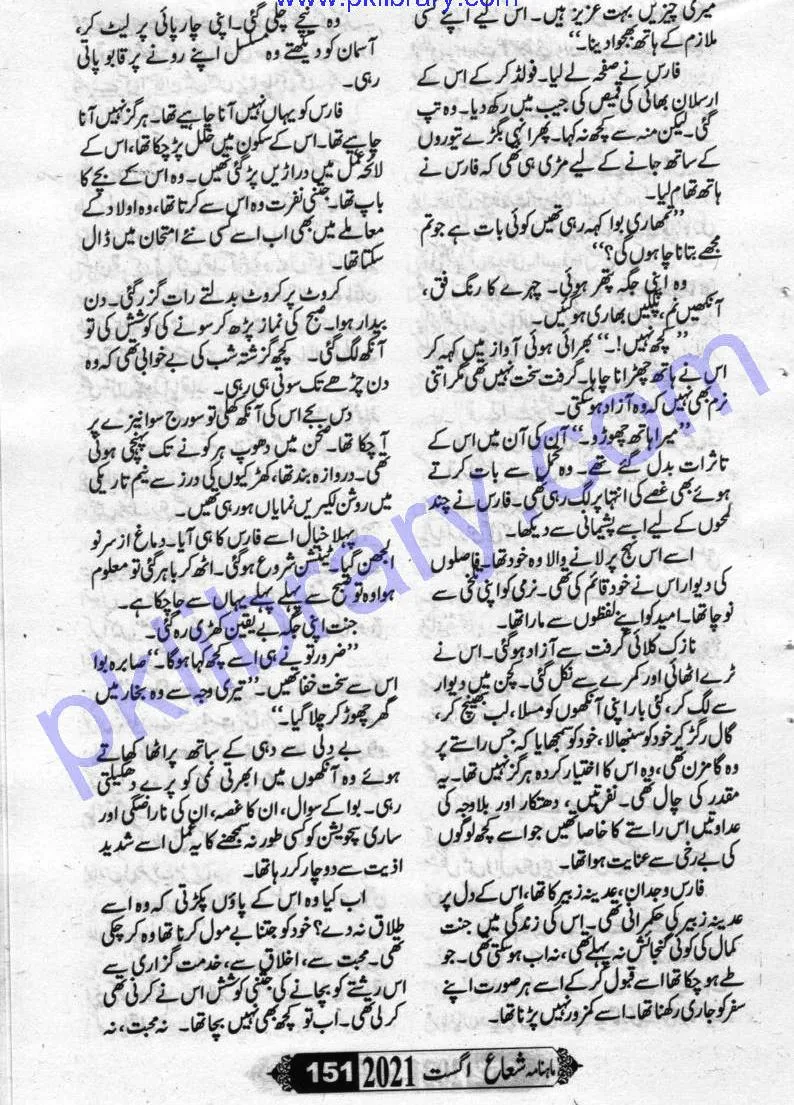 www.pklibrary.com
میری چیزیں بہت عزیز ہیں۔ اس لیے اپنے کسی
ملازم کے ہاتھ بھجوا دینا۔‘‘
فارس نے صفحہ لے لیا۔ فولڈ کر کے اس کے
ارسلان بھائی کی قمیص کی جیب میں رکھ دیا۔ وہ تپ
گئی۔ لیکن منہ سے کچھ نہ کہا۔ پھر انہی بگڑے تیوروں
کے ساتھ جانے کے لیے مڑی ہی تھی کہ فارس نے
ہاتھ تھام لیا۔
’’تمھاری بوا کہہ رہی تھیں کوئی بات ہے جو تم
مجھے بتانا چاہوں گی؟‘‘
وہ اپنی جگہ پتھر ہوئی۔ چہرے کا رنگ فق،
آنکھیں نم، پلکیں بھاری ہوگئیں۔
’’کچھ نہیں!۔‘‘ بھرائی ہوئی آواز میں کہہ کر
اس نے ہاتھ چھڑانا چاہا۔ گرفت سخت نہیں تھی مگر اتنی
نرم بھی نہیں کہ وہ آزاد ہوسکتی۔
’’میرا ہاتھ چھوڑو۔‘‘ آن کی آن میں اس کے
تاثرات بدل گئے تھے۔ وہ تحمل سے بات کرتے
ہوئے بھی غصے کی انتہا پر لگ رہی تھی۔ فارس نے چند
لمحوں کے لیے اسے پشیمانی سے دیکھا۔
اسے اس نہج پر لانے والا وہ خود تھا۔ فاصلوں
کی دیوار اس نے خود قائم کی تھی۔ نرمی کو اپنی تلخی سے
نوچا تھا۔ امید کو اپنے لفظوں سے مارا تھا۔
نازک کلائی گرفت سے آزاد ہوگئی۔ اس نے
ٹرے اٹھائی اور کمرے سے نکل گئی۔ کچن میں دیوار
سے لگ کر، کئی بار اپنی آنکھوں کو مسلا، لب بھینچ کر،
گال رگڑ کر خود کو سنبھالا، خود کو سمجھایا کہ جس راستے پر
وہ گامزن تھی، وہ اس کا اختیار کردہ ہرگز نہیں تھا۔ یہ
مقدر کی چال تھی۔ نفرتیں، دھتکار اور بلاوجہ کی
عداوتیں اس راستے کا خاصا تھیں جو اسے کچھ لوگوں
کی بے رخی سے عنایت ہوا تھا۔
فارس وجدان، عدینہ زبیر کا تھا، اس کے دل پر
عدینہ زبیر کی حکمرانی تھی۔ اس کی زندگی میں جنت
کمال کی کوئی گنجائش نہ پہلے تھی، نہ اب ہوسکتی تھی۔ جو
طے ہو چکا تھا اسے قبول کر کے اسے ہر صورت اپنے
سفر کو جاری رکھنا تھا۔ اسے کمزور نہیں پڑنا تھا۔
وہ نیچے چلی گئی۔ اپنی چارپائی پر لیٹ کر،
آسمان کو دیکھتے وہ مسلسل اپنے رونے پر قابو پاتی
رہی۔
فارس کو یہاں نہیں آنا چاہیے تھا۔ ہرگز نہیں آنا
چاہیے تھا۔ اس کے سکون میں خلل پڑ چکا تھا، اس کے
لائحہ عمل میں دراڑیں پڑ گئی تھیں۔ وہ اس کے بچے کا
باپ تھا۔ جتنی نفرت وہ اس سے کرتا تھا، وہ اولاد کے
معاملے میں بھی اب اسے کسی نئے امتحان میں ڈال
سکتا تھا۔
کروٹ پر کروٹ بدلتے رات گزر گئی۔ دن
بیدار ہوا۔ صبح کی نماز پڑھ کر سونے کی کوشش کی تو
آنکھ لگ گئی۔ کچھ گزشتہ شب کی بے خوابی تھی کہ وہ
دن چڑھے تک سوتی ہی رہی۔
دس بجے اس کی آنکھ کھلی تو سورج سوا نیزے پر
آچکا تھا۔ صحن میں دھوپ ہر کونے تک پہنچی ہوئی
تھی۔ دروازہ بند تھا، کھڑکیوں کی درز سے نیم تاریکی
میں روشن لکیریں نمایاں ہو رہی تھیں۔
پہلا خیال اسے فارس کا ہی آیا۔ دماغ از سر نو
الجھن گیا۔ ٹینشن شروع ہوگئی۔ اٹھ کر باہر گئی تو معلوم
ہوا وہ تو صبح سے پہلے پہلے یہاں سے جا چکا ہے۔
جنت اپنی جگہ بے یقین کھڑی رہ گئی۔
’’ضرور تو نے ہی اسے کچھ کہا ہوگا۔‘‘ صابرہ بوا
اس سے سخت خفا تھیں۔ ’’تیری وجہ سے وہ بخار میں
گھر چھوڑ کر چلا گیا۔‘‘
بے دلی سے دہی کے ساتھ پراٹھا کھاتے
ہوئے وہ آنکھوں میں ابھرتی نمی کو پرے دھکیلتی
رہی۔ بوا کے سوال، ان کا غصہ، ان کی ناراضگی اور
ساری سچویشن کو کسی طور نہ سمجھنے کا یہ عمل اسے شدید
اذیت سے دوچار کر رہا تھا۔
اب کیا وہ اس کے پاؤں پکڑتی کہ وہ اسے
طلاق نہ دے؟ خود کو جتنا بے مول کرنا تھا وہ کر چکی
تھی۔ محبت سے، اخلاق سے، خدمت گزاری سے
اس رشتے کو بچانے کی جتنی کوشش اس نے کرنی تھی
کر لی تھی۔ اب تو کچھ بھی نہیں بچا تھا۔ نہ محبت، نہ
ماہنامہ شعاع اگست 2021 151
pklibrary.com